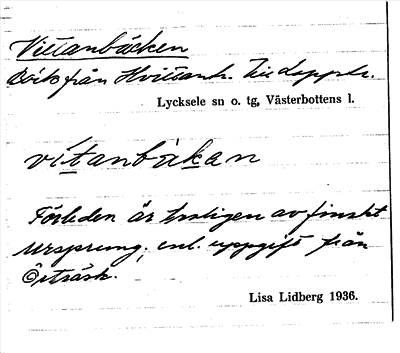 Vittanbäcken
Bäck från Hvittantr. till Lappstr.
Lycksele sn o. tg, Västerbottens l.
vìtanbäkan
Förleden är troligen av finskt
ursprung, enl. uppgift från
Örträsk.
Lisa Lidberg 1936.